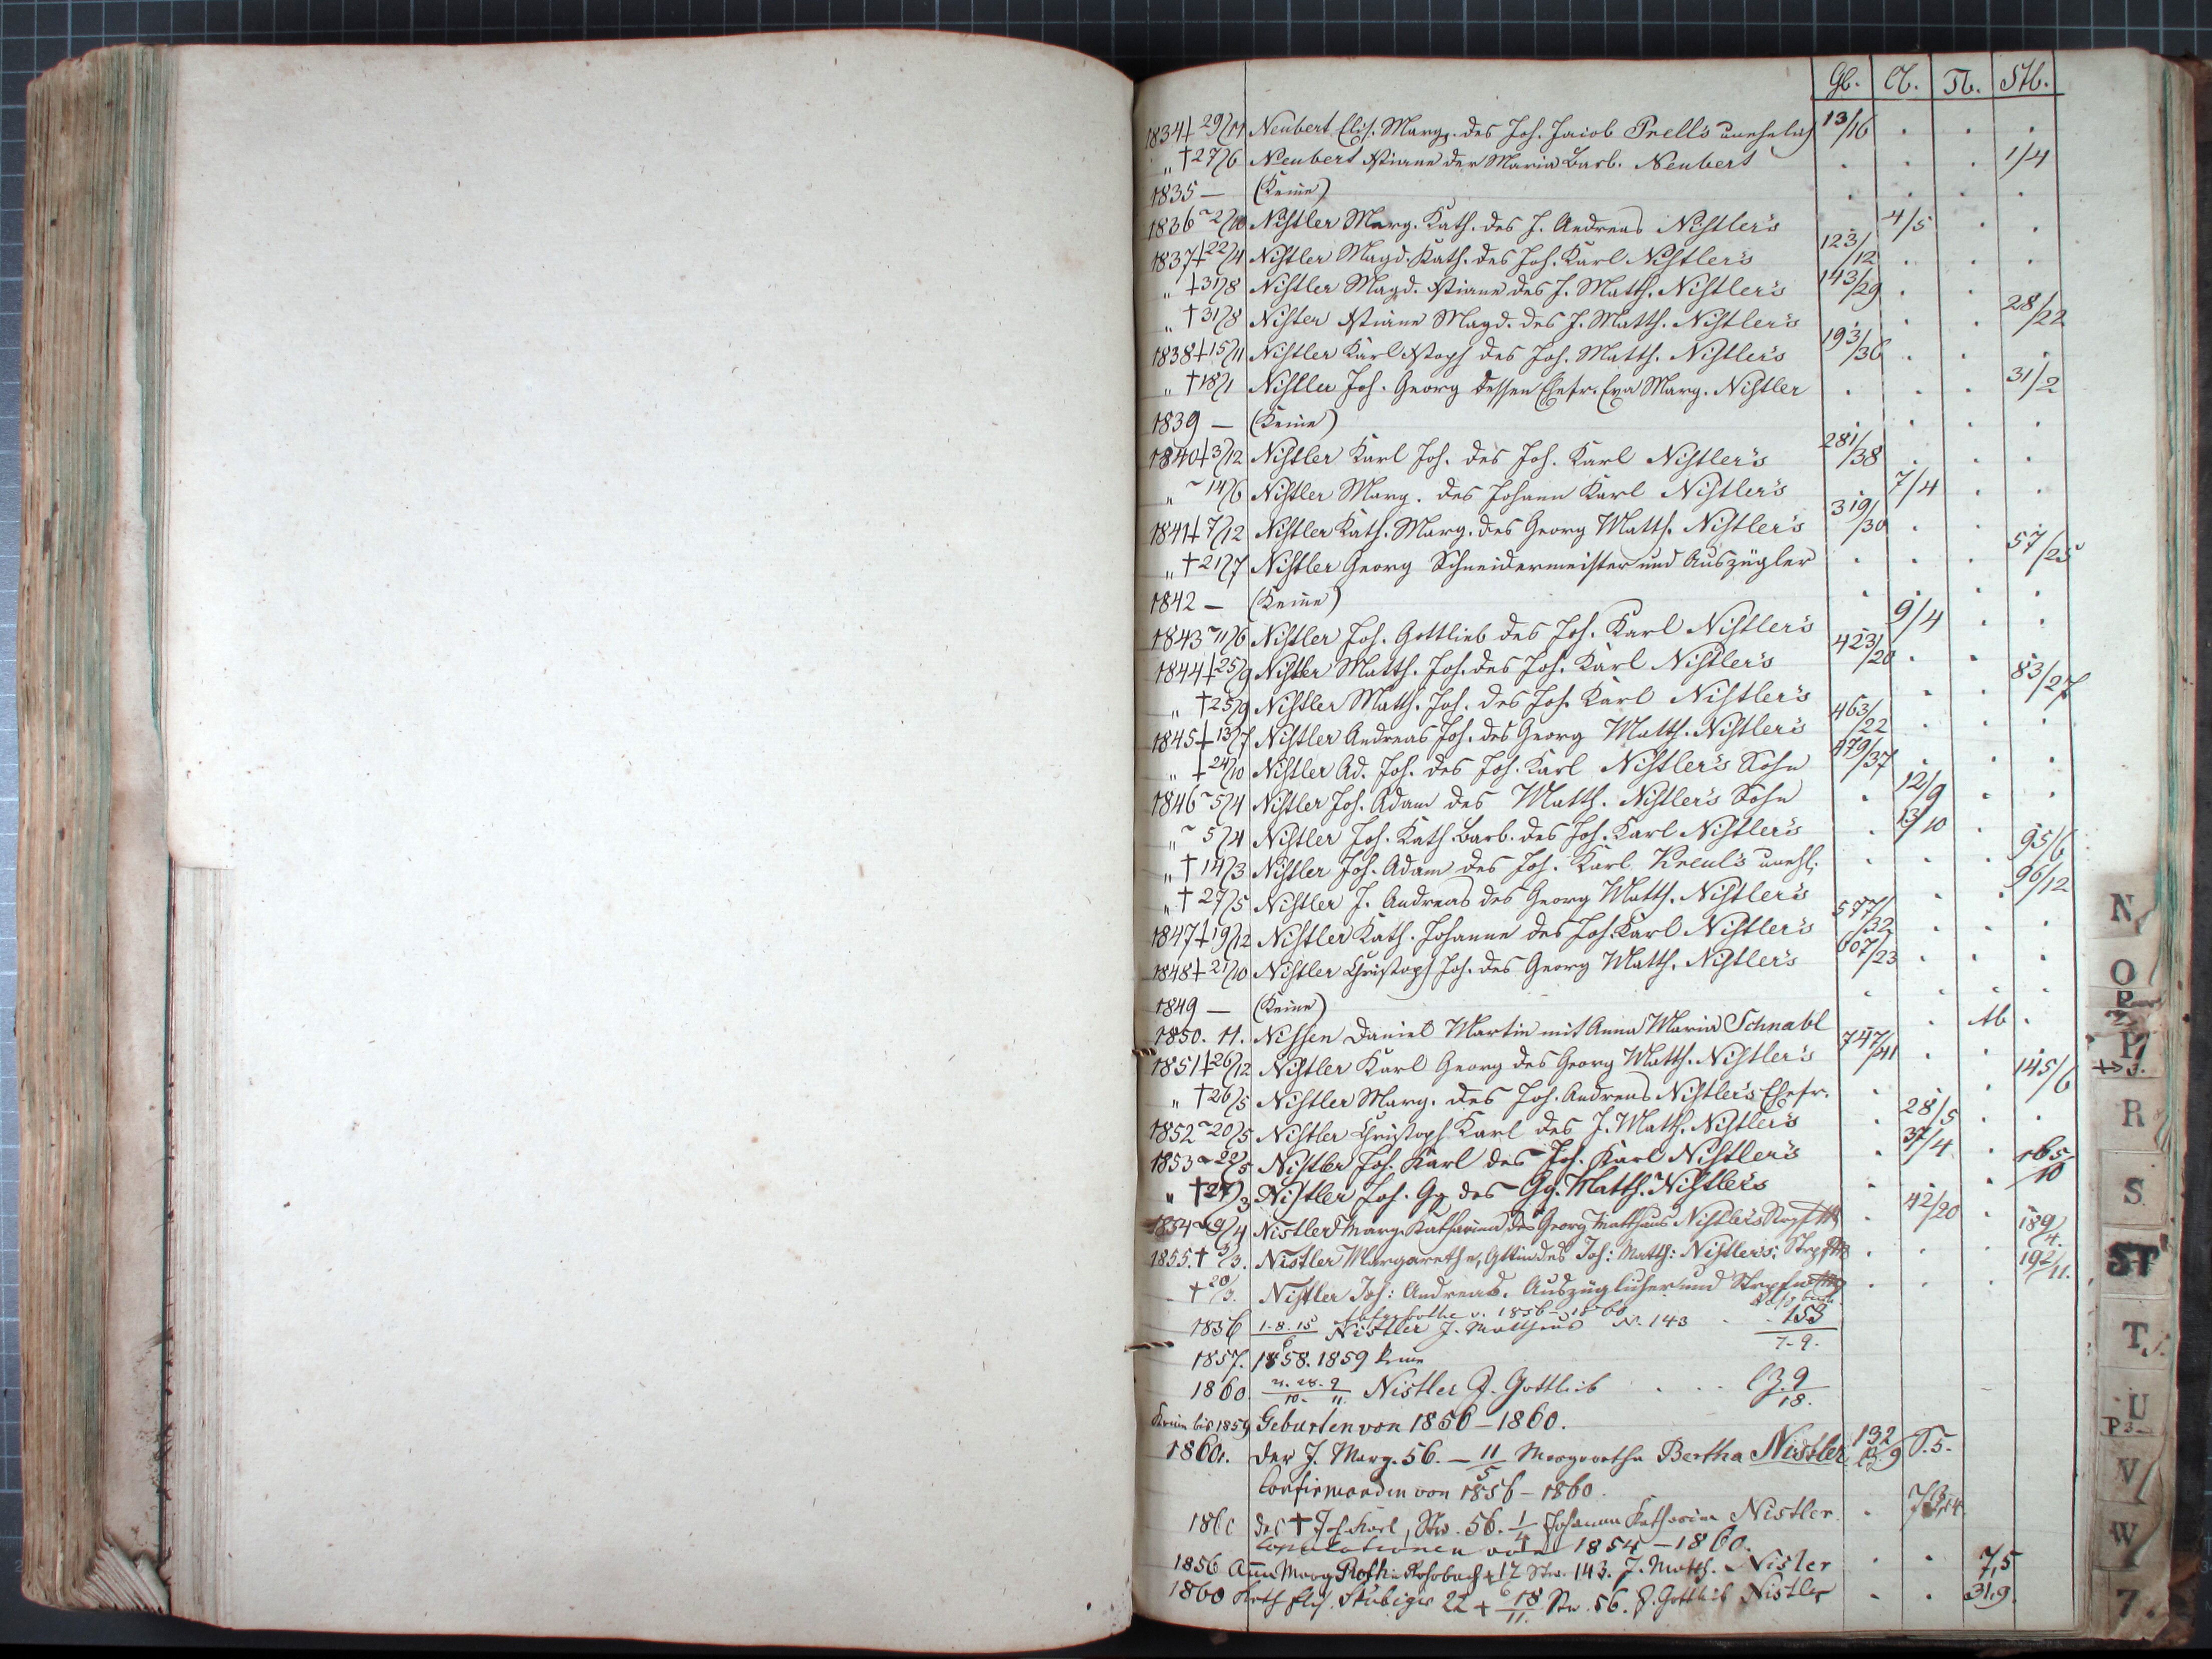 Gb. Cb. Tb. Stb.
1834 ⚹ 29/11 Neubert Elis. Marg. des Joh. Jacob Prell's unehelich 13/16 . . .
„ † 27/6 Neubert Xtiane der Maria Barb. Neubert . . . 1/4
1835 — (Keine) . . . .
1836 ~ 2/10 Nistler Marg. Kath. des J. Andreas Nistler's 4/5 . .
1837 ⚹ 22/4 Nistler Magd. Kath. des Joh. Karl Nistler's 123/12 . . .
„ ⚹ 31/8 Nistler Magd. Xtiane des J. Matth. Nistler's 143/29 . .
„ † 31/8 Nister Xtiane Magd. des J. Matth. Nistler's . . . 28/22
1838 ⚹ 15/11 Nistler Karl Xtoph des Joh. Matth. Nistler's 193/36 . . .
„ † 18/1 Nistler Joh. Georg dessen Ehefr. Eva Marg. Nistler . . . 31/2
1839 — (Keine) . . . .
1840 ⚹ 3/12 Nistler Karl Joh. des Joh. Karl Nistler's 281/38 . . .
„ ~ 14/6 Nistler Marg. des Johann Karl Nistler's . 7/4 . .
1841 ⚹ 7/12 Nistler Kath. Marg. des Georg Matth. Nistler's 319/30 . . .
„ † 21/7 Nistler Georg Schneidermeister und Auszügler . . . 57/25
1842 — (Keine) . . . .
1843 ~ 11/6 Nistler Joh. Gottlieb des Joh. Karl Nistler's 9/4 . .
1844 ⚹ 25/9 Nistler Matth. Joh. des Joh. Karl Nistler's 423/20 . .
„ † 25/9 Nistler Matth. Joh. des Joh. Karl Nistler's . . 83/27
1845 ⚹ 13/7 Nistler Andreas Joh. des Georg Matth. Nistler's 463/22 . . .
„ ⚹ 24/10 Nistler Ad. Joh. des Joh. Karl Nistler's Sohn 479/37 . . .
1846 ~ 5/4 Nistler Joh. Adam des Matth. Nistler's Sohn . 12/9 . .
„ ~ 5/4 Nistler Joh. Kath. Barb. des Joh. Karl Nistler's . 13/10 .
„ † 14/3 Nistler Joh. Adam des Joh. Karl Kreul's unehl. . . . 95/6
„ † 27/5 Nistler J. Andreas des Georg Matth. Nistler's . . 96/12
1847 ⚹ 19/12 Nistler Kath. Johanne des Joh. Karl Nistler's 577/32 . . .
1848 ⚹ 21/10 Nistler Christoph Joh. des Georg Matth. Nistler's 607/23 . . .
1849 — (Keine) . . . .
1850. 11. Nissen Daniel Martin mit Anna Maria Schnabl . Ab .
1851 ⚹ 26/12 Nistler Karl Georg des Georg Matth. Nistler's 747/41 . .
„ † 26/5 Nistler Marg. des Joh. Andreas Nistler's Ehefr. . . . 145/6
1852 ~ 20/5 Nistler Christoph Karl des J. Matth. Nistler's . 28/5 . .
1853 ~ 22/5 Nistler Joh. Karl des Joh. Karl Nistler's . 37/4 .
„ † 27/3 Nistler Joh. Gg des Gg. Matth. Nistler's . . . 165/10
1854 ~ 9/4 Nistler Marg. Katharina des Georg Matthäus Nistler's . 42/20 .
1855. † 3/3. Nistler Margarethe, Gttin des Joh: Matth: Nistler's: . . . 189/4.
† 20/3. Nistler Joh: Andreas. Auszügler und . . . 192/11.
v. 1856–1860
1856 1.8.15/6 Nistler J. Matthäus N. 143 . . 153/7-9.
1857. 1858. 1859 keine
1860 Nistler J. Gottlieb . . . 9/18.
Keine bis 1859 Geburten von 1856–1860.
1860. der J. Marg. 56. — 11/5 Margaretha Bertha Nistler 132
Confirmanden von 1856–1860.
des † Joh. Karl, 56. 1/4 Johanna Katharina Nistler.
Copulationen von 1854–1860.
1856 Anna Marg Roth 143. J. Matth. Nistler . . 7,5
1860 22 + 18/11. 56. J. Gottlieb Nistler . . 31,9.
N
O
P
R
S
ST
T
U
V
W
Z